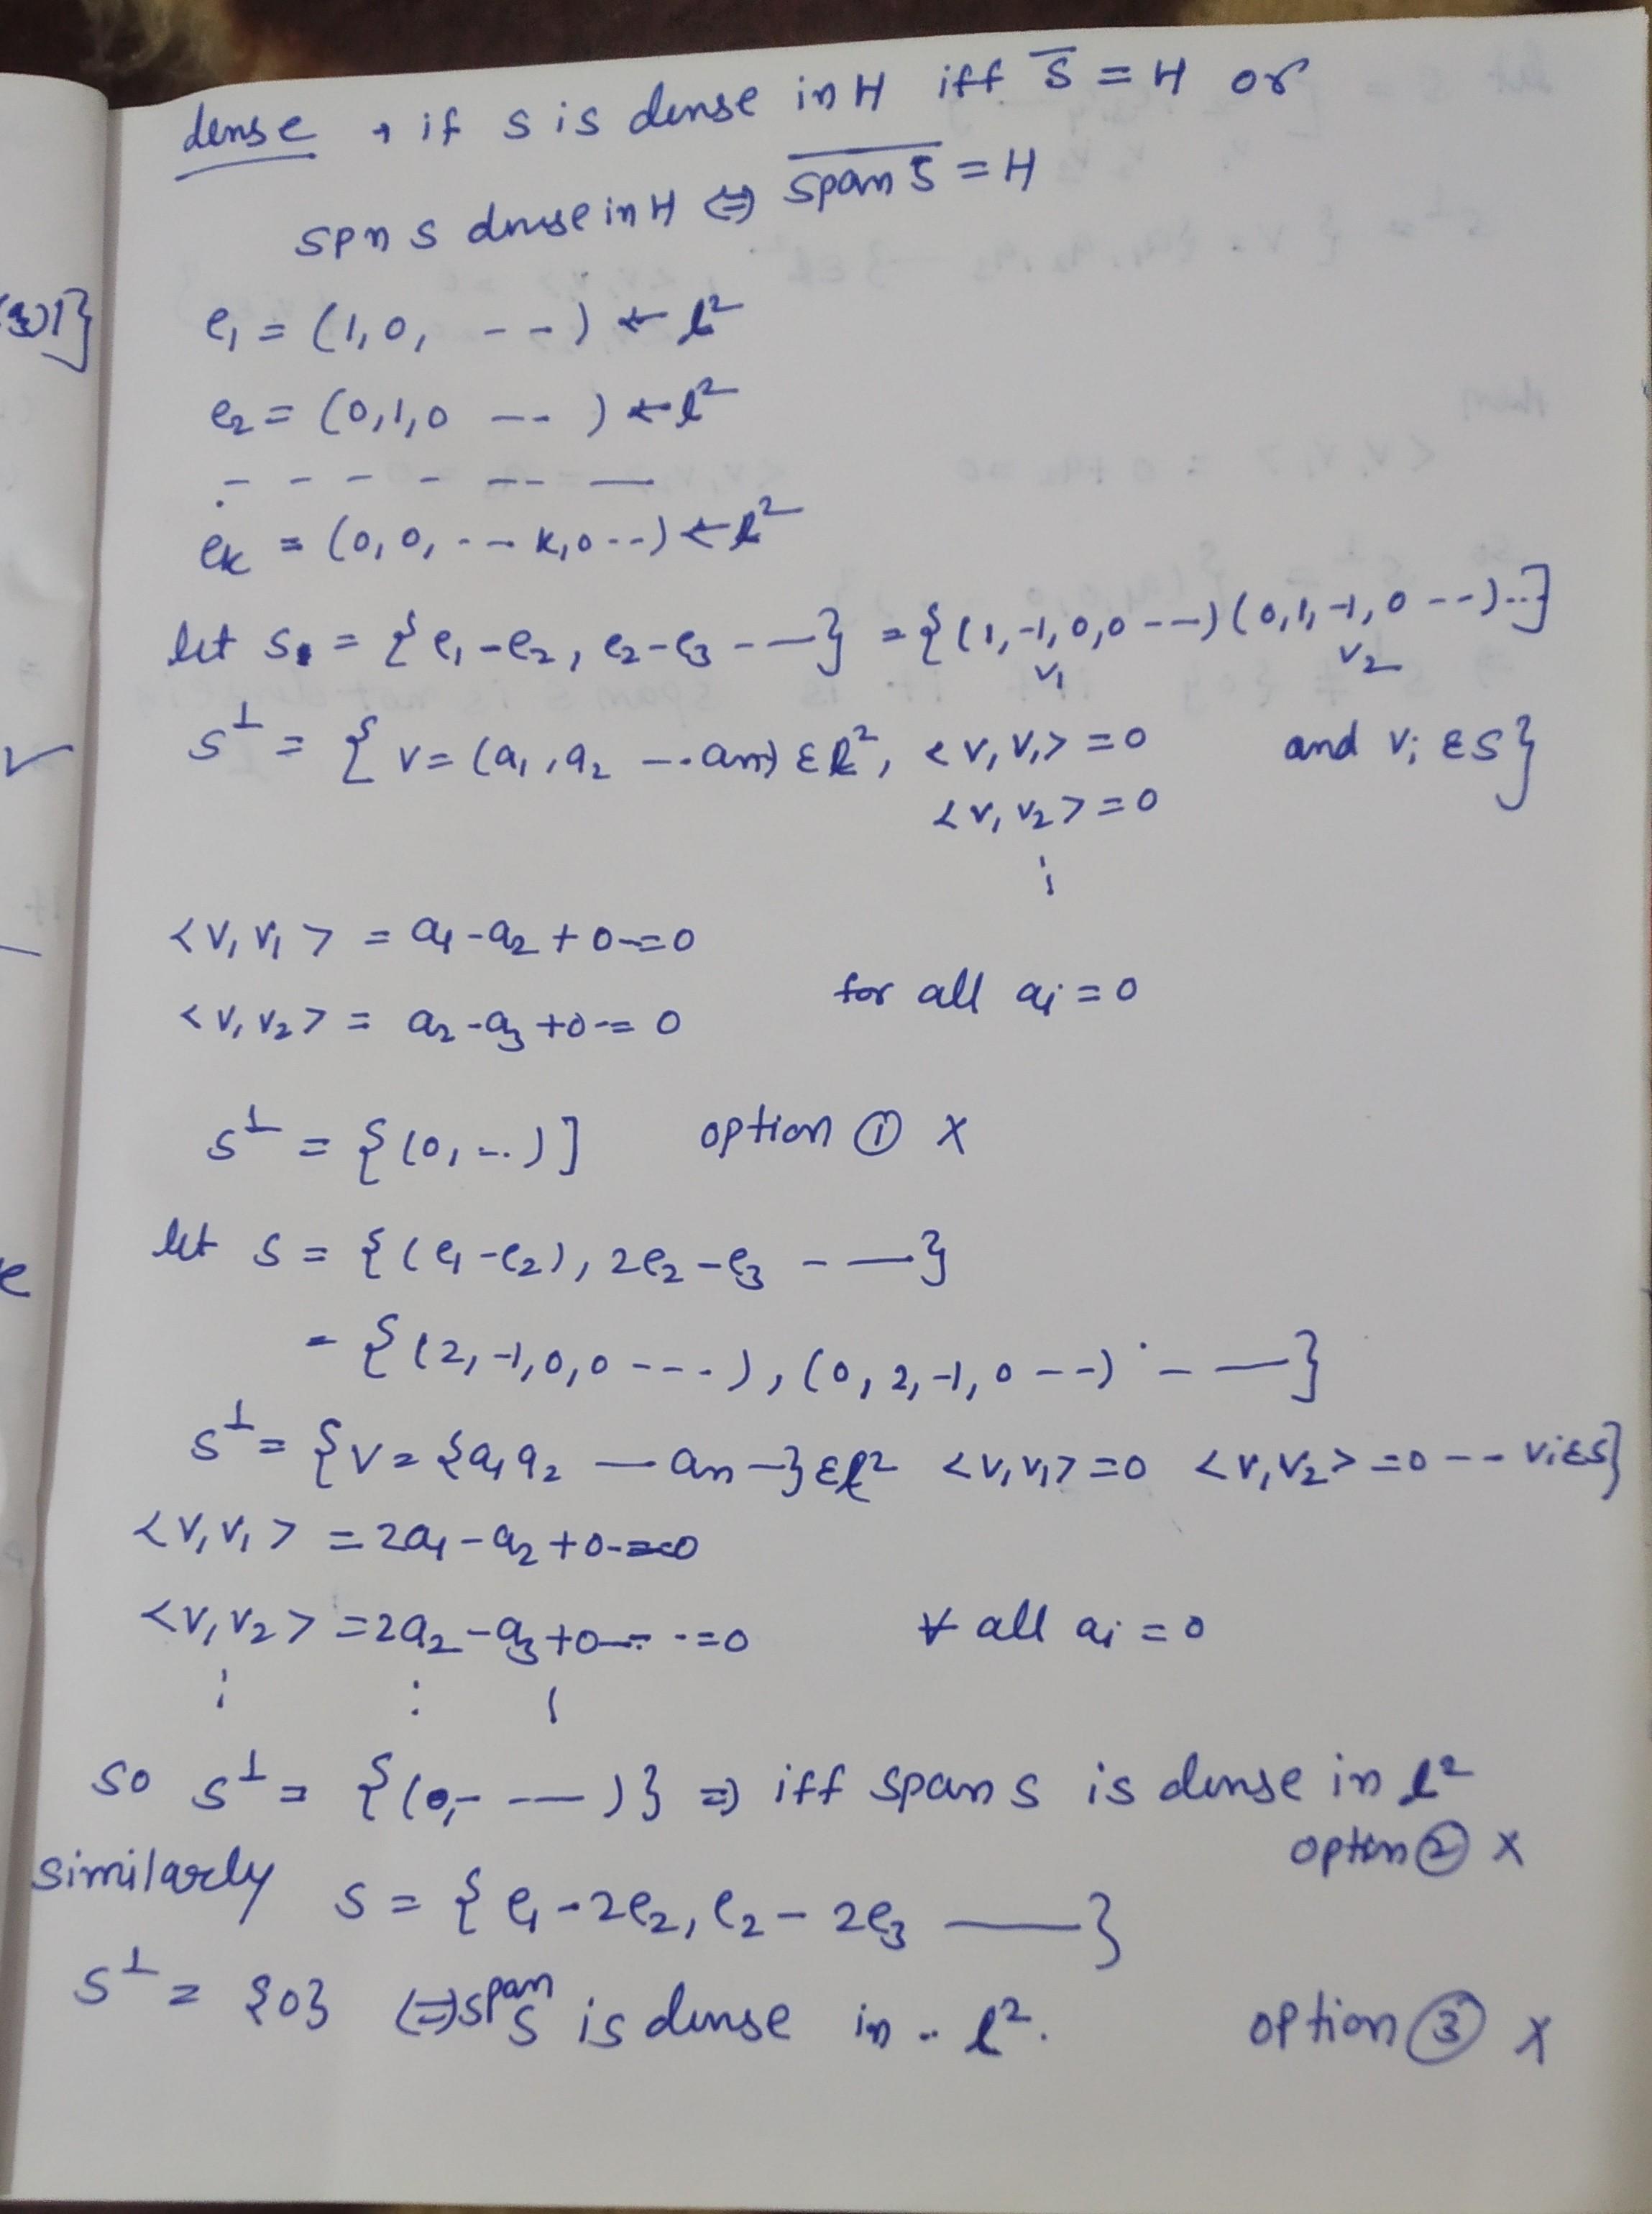 dense → if S is dense in H iff S̅ = H or
spn S dense in H ⇔ \overline{span S} = H
e₁ = (1,0, - - -) ← l²
e₂ = (0,1,0 -- ) ← l²
. - - - - -- —
eₖ = (0,0, -- - k,0 --) ← l²
let S = {e₁-e₂, e₂-e₃ -- —} = {(1,-1,0,0 ---) (0,1,-1,0 --)..}
v₁ v₂
S^⊥ = { v = (a₁, a₂ --- an) ∈ l², <v,v₁> = 0 and vᵢ ∈ S}
<v,v₂> = 0
⋮
<v,v₁> = a₁-a₂+0-=0
for all aᵢ = 0
<v,v₂> = a₂-a₃+0-= 0
S^⊥ = {(0, ...)] option ① X
let S = {(e₁-e₂), 2e₂-e₃ - - —}
= {(2,-1,0,0 ---.), (0,2,-1,0 --) - —}
S^⊥ = {v = {a₁ a₂ — an -} ∈ l² <v,v₁> = 0 <v,v₂> = 0 -- vᵢ ∈ S}
<v,v₁> = 2a₁-a₂+0-=0
<v,v₂> = 2a₂-a₃+0-- -=0 ∀ all aᵢ = 0
⋮ ⋮ ⋮
so S^⊥ = {(0,- -—)} ⇒ iff span S is dense in l²
option ② X
similarly S = {e₁-2e₂, e₂-2e₃ —}
S^⊥ = {0} ⇔ span S is dense in .. l². option ③ X